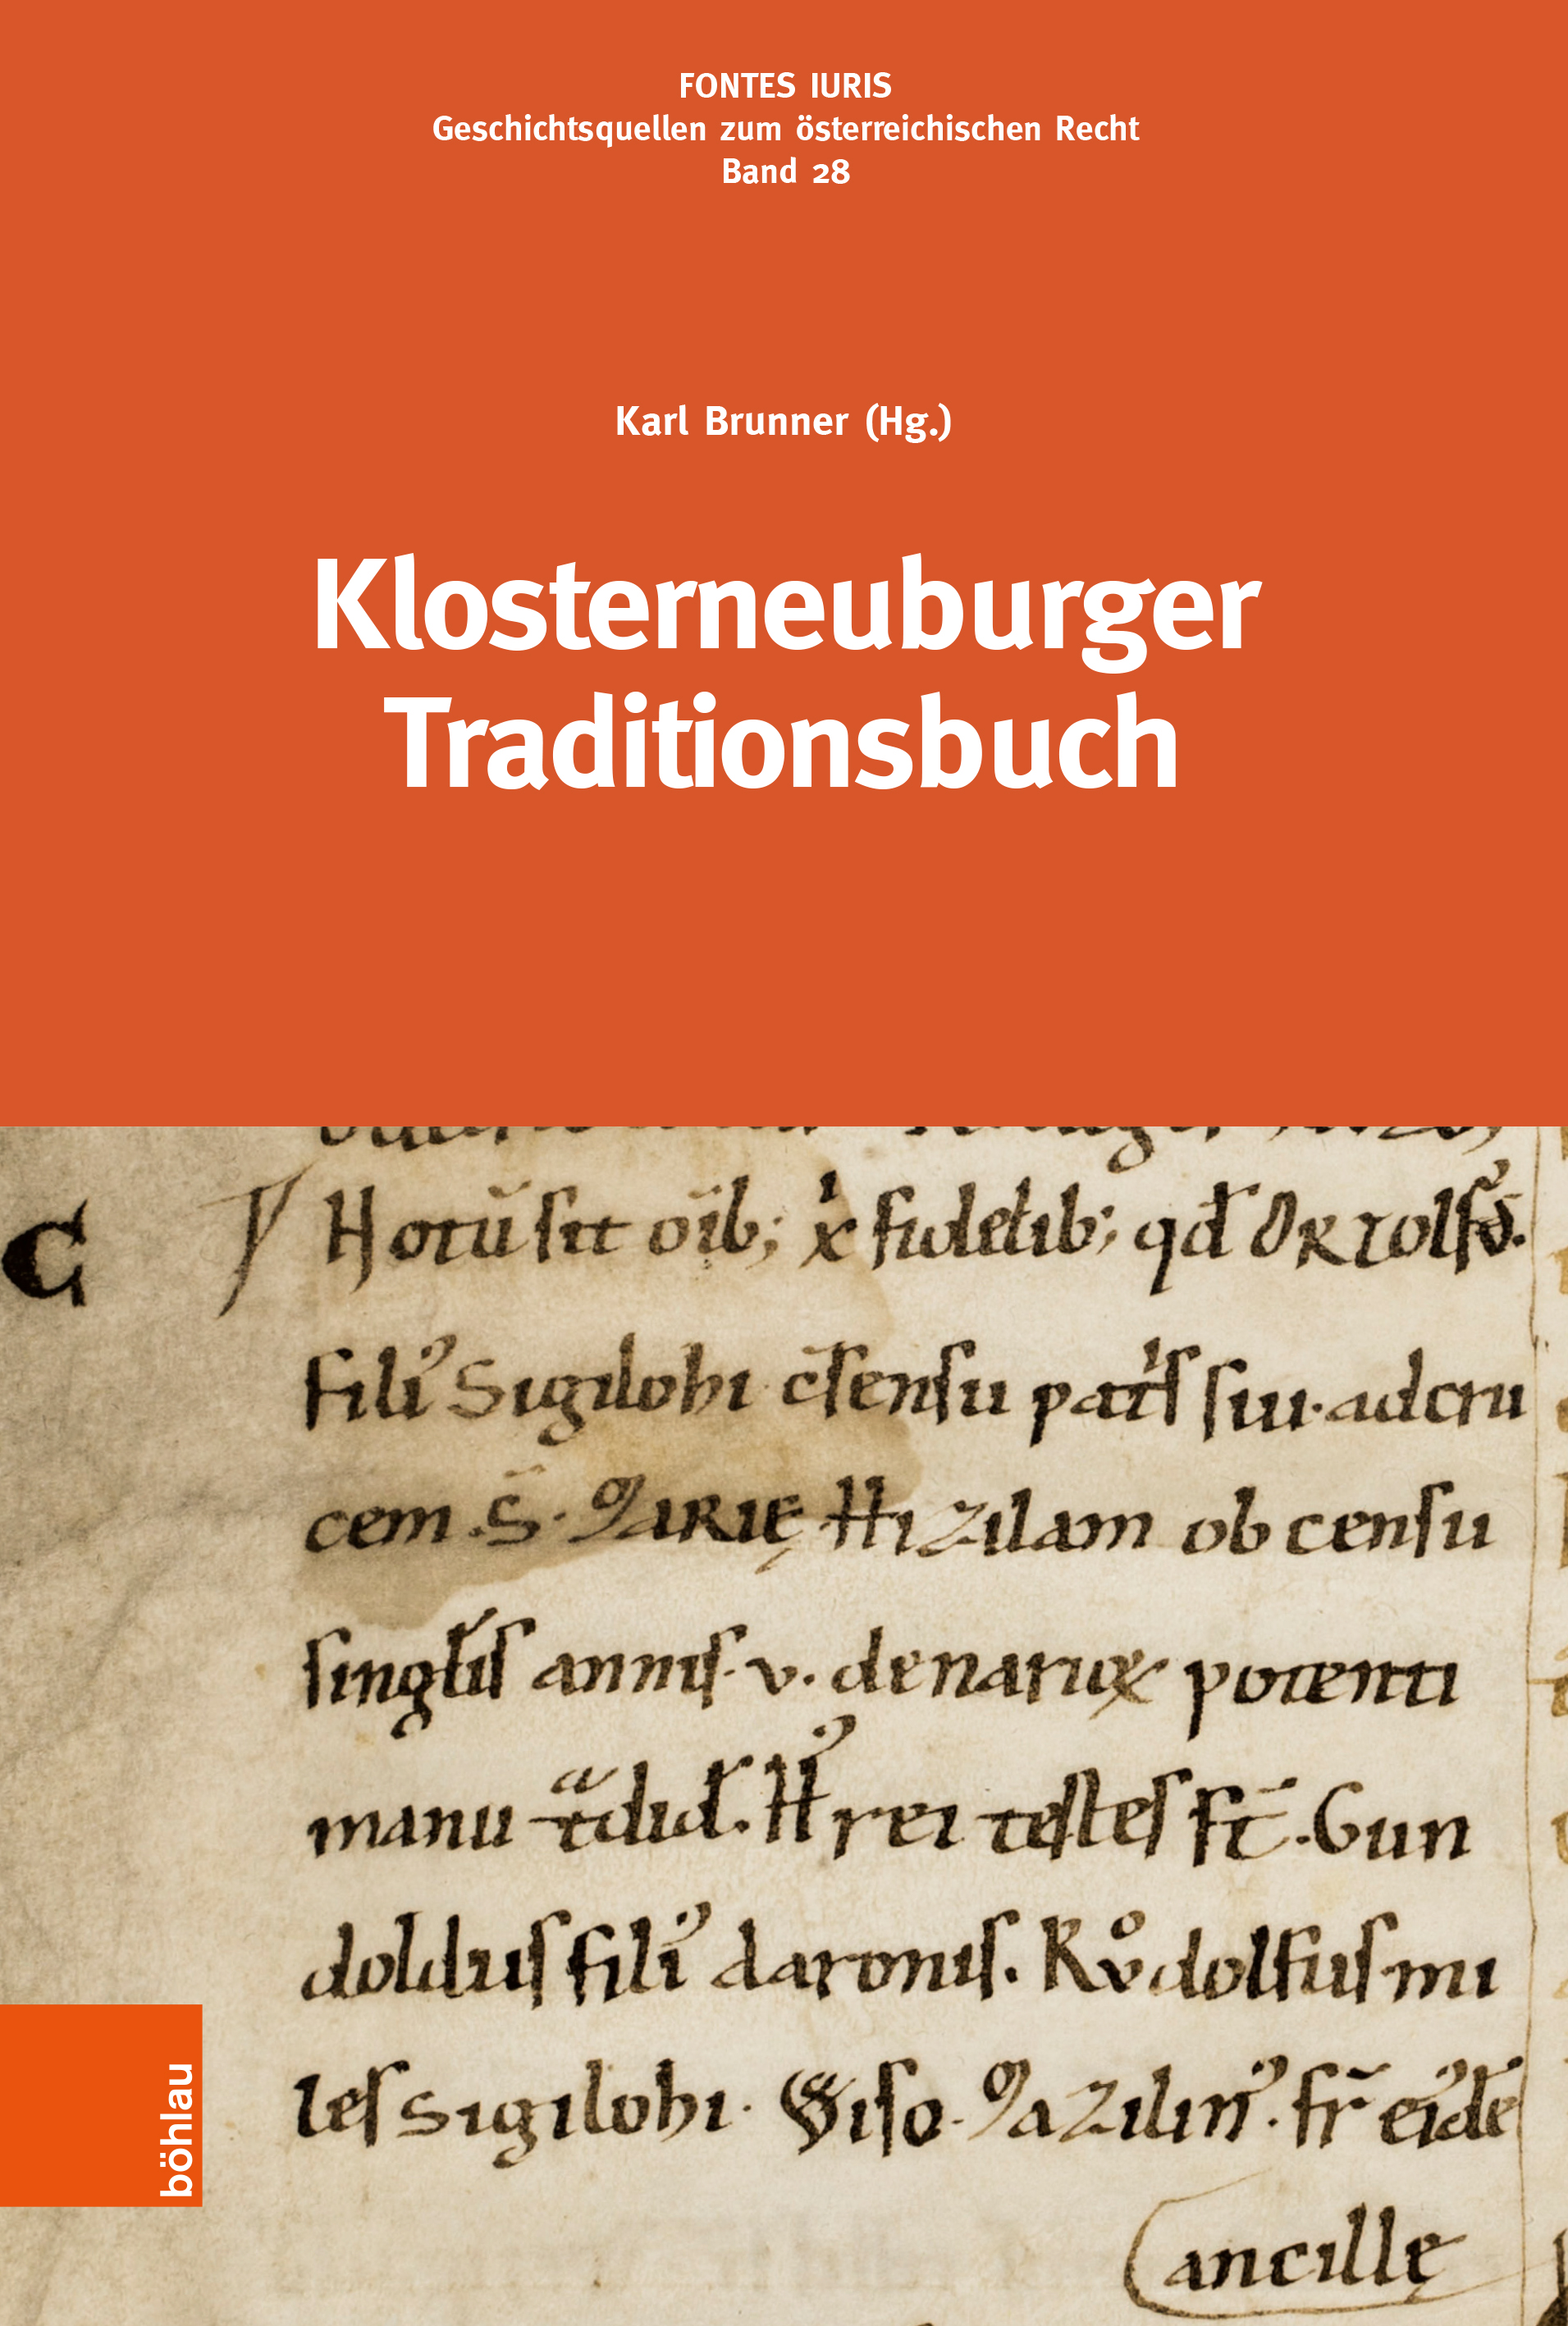 FONTES IURIS
Geschichtsquellen zum österreichischen Recht
Band 28
Karl Brunner (Hg.)
Klosterneuburger
Traditionsbuch
C
Notū ſit oīb; xͥ fidelib; qđ Ortolfꝰ.
filiꝰ Sigilohi c̄ſenſu patͥſ ſui·adcru
cem .S̄. MARIĘ Hizilam ob censu
ſinglíſ anniſ·v. denariox potenti
manu tͣdid. Hꝰ rei teſteſ ſt̄ .Gun
dolduſ filiꝰ daroniſ. Rvͦdolfuſ·mi
leſ sigilohi · Wiſo · Mazilinꝰ. fr̄ eiꝰdē
ancillę
böhlau